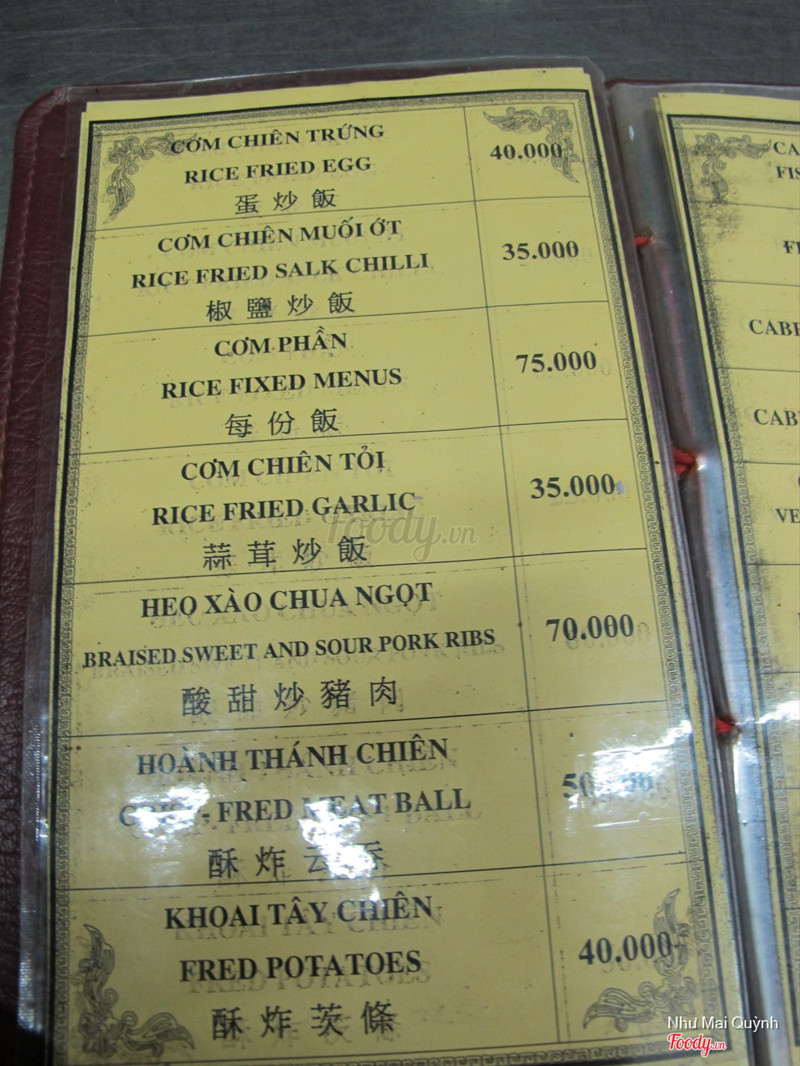 CƠM CHIÊN TRỨNG
RICE FRIED EGG
蛋炒飯
40.000
CƠM CHIÊN MUỐI ỚT
RICE FRIED SALK CHILLI
椒鹽炒飯
35.000
CƠM PHẦN
RICE FIXED MENUS
每份飯
75.000
CƠM CHIÊN TỎI
RICE FRIED GARLIC
蒜茸炒飯
35.000
HEO XÀO CHUA NGỌT
BRAISED SWEET AND SOUR PORK RIBS
酸甜炒豬肉
70.000
HOÀNH THÁNH CHIÊN
- FRED MEAT BALL
酥炸云吞
KHOAI TÂY CHIÊN
FRED POTATOES
酥炸茨條
40.000
CA
FIS
CABB
CAB
VE
Foody.vn
Như Mai Quỳnh
Foody.vn